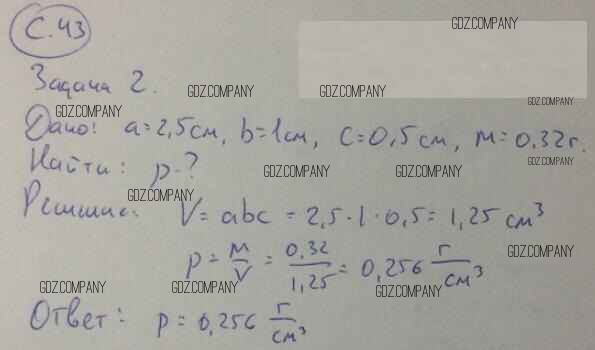 с. 43
GDZ.COMPANY
Задача 2.
GDZ.COMPANY GDZ.COMPANY
GDZ.COMPANY
GDZ.COMPANY
Дано: a=2,5см, b=1см, c=0,5см, м=0,32г.
Найти: p-?
GDZ.COMPANY GDZ.COMPANY GDZ.COMPANY
GDZ.COMPANY
Решение: V = abc = 2,5·1·0,5 = 1,25 см³
p = м/V = 0,32/1,25 = 0,256 г/см³
GDZ.COMPANY
GDZ.COMPANY GDZ.COMPANY GDZ.COMPANY
Ответ: p = 0,256 г/см³